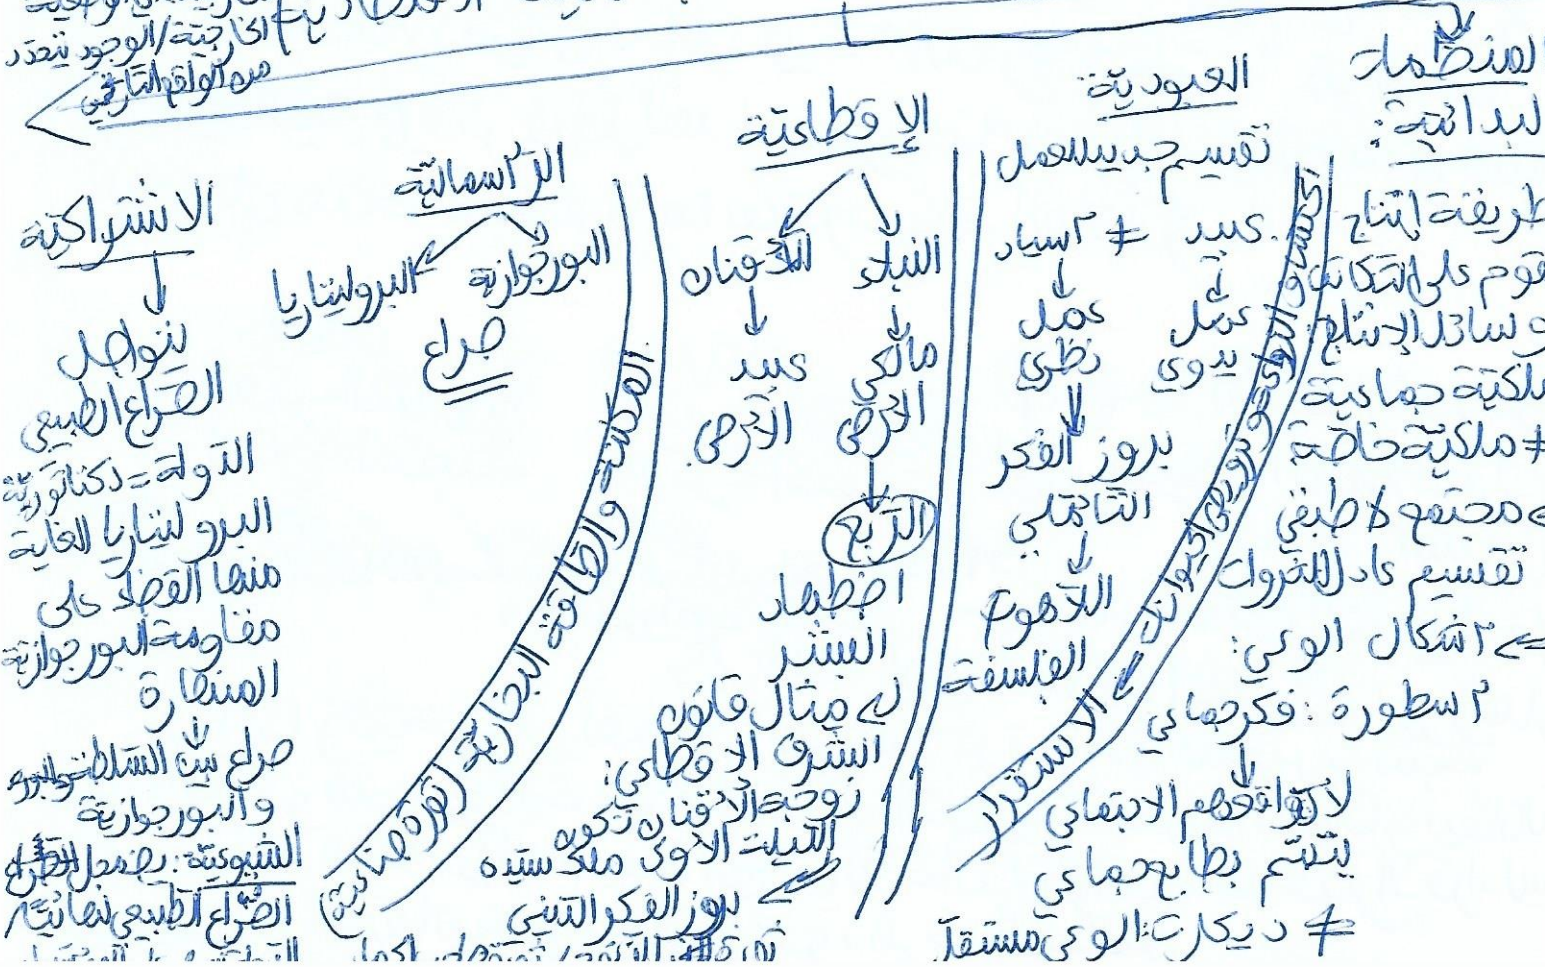 الخارجية/الوجود يتحدد
من الواقع التاريخي
المنظمات
البدائية:
طريقة إنتاج
تقوم على التكاتف
وسائل الإنتاج:
ملكية جماعية
≠ ملكية خاصة
مجتمع لا طبقي
تقسيم عادل للثروات
⇐ أشكال الوعي:
أسطورة: فكر جماعي
لأن واقعهم الاجتماعي
يتسم بطابع جماعي
≠ ديكارت: الوعي مستقل
اكتشاف الزراعة وترويض الحيوانات ← الاستقرار
العبودية
تقسيم جديد للعمل
عبيد ≠ أسياد
عمل يدوي
عمل نظري
بروز الفكر
التأملي
اللاهوت
الفلسفة
الإقطاعية
النبلاء
الأقنان
مالكي
الأرض
عبيد
الأرض.
الربع
اضطهاد
البشر
مثال قانون
الشرف الاقطاعي:
زوجة الأقنان تكون
الليلة الأولى ملك سيده
بروز الفكر الديني
المكننة والطاقة البخارية (ثورة صناعية)
الرأسمالية
البورجوازية
البروليتاريا
صراع
الاشتراكية
يتواصل
الصراع الطبقي
الدولة = دكتاتورية
البروليتاريا الغاية
منها القضاء على
مقاومة البورجوازية
المنهارة
صراع بين السلطة
والبورجوازية
الشيوعية: يضمحل
الصراع الطبقي نهائيا